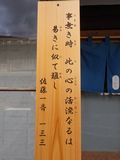 事無き時、此の心の活溌なるは、
易きに似て難し
佐藤一斎 一三三